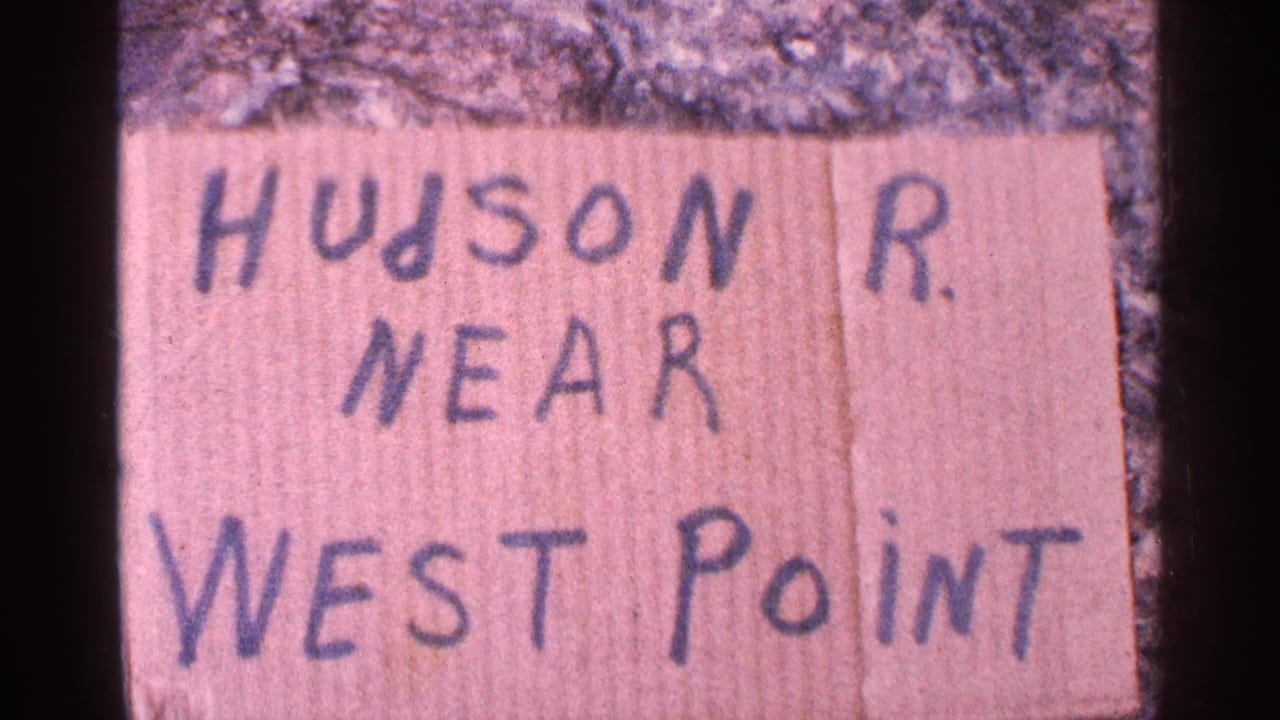 HUdSON R.
NEAR
WEST POiNT